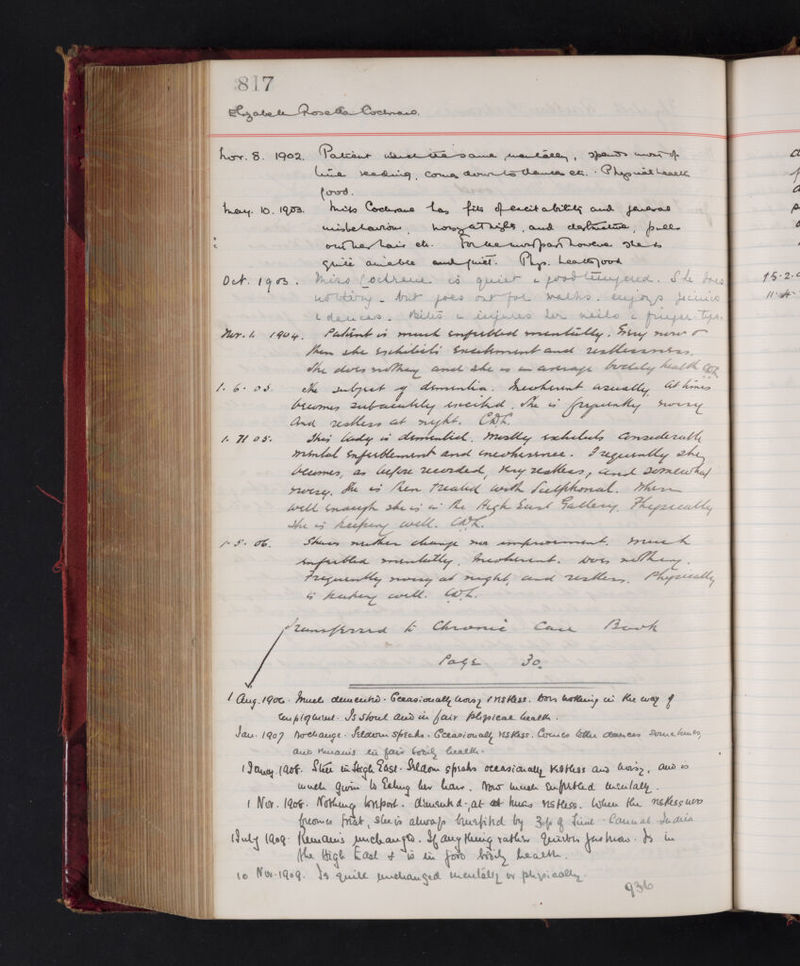 817
Elizabeth Rosetta Cochrane.
Nov. 8. 1902. Patient much the same mentally, spends most of
time reading, comes down to dances etc. Physical health
good.
May. 10. 1903. Miss Cochrane has fits of excitability and general
misbehaviour, noisy at night, and destructive, pulls
out her hair etc. For the most part however she is
quite amiable and quiet. Phys. health good
Oct. 1903. Miss Cochrane is quiet & good tempered. She does
nothing - but goes out for walks. enjoys picnics
& dances. Bites & injures her nails & finger tips.
Nov. 1. 1904. Patient is much enfeebled mentally. Every now &
then she exhibits excitement and restlessness.
She does nothing and she is in average bodily health
1. 6. 05. The subject of dementia. Incoherent usually. At times
becomes subacutely excited. She is frequently noisy
and restless at night.
1. 11 05. This lady is demented. Mostly exhibits considerable
mental enfeeblement and incoherence. Frequently she
becomes, as before recorded, very restless, and somewhat
noisy. She is then treated with Sulphonal. When
well enough she is in the High East Gallery. Physically
she is keeping well.
1. 5. 06. Shows neither change nor improvement. Much
enfeebled mentally. Incoherent. Does nothing.
Frequently noisy at night, and restless. Physically
is keeping well.
Transferred to Chronic Case Book
Page 30.
1 Aug. 1906. Much demented. Occasionally noisy & restless. Does nothing in the way of
employment. Is stout and in fair physical health.
Jan. 1907 No change. Seldom speaks. Occasionally restless. Comes to the dances sometimes
and remains in fair bodily health.
1 Jany. 1908. Still in High East. Seldom speaks occasionally restless and noisy, and is
much given to eating her hair. Now much enfeebled mentally.
1 Nov. 1908. Nothing to report. demented, at times restless. When the restlessness
becomes great, she is always benefited by of Cannab. Indica
1 July 1909. Remains unchanged. If anything rather quieter just now. Is in
the High East & is in good bodily health.
10 Nov. 1909. Is quite unchanged mentally or physically.
936
15.2.
11.